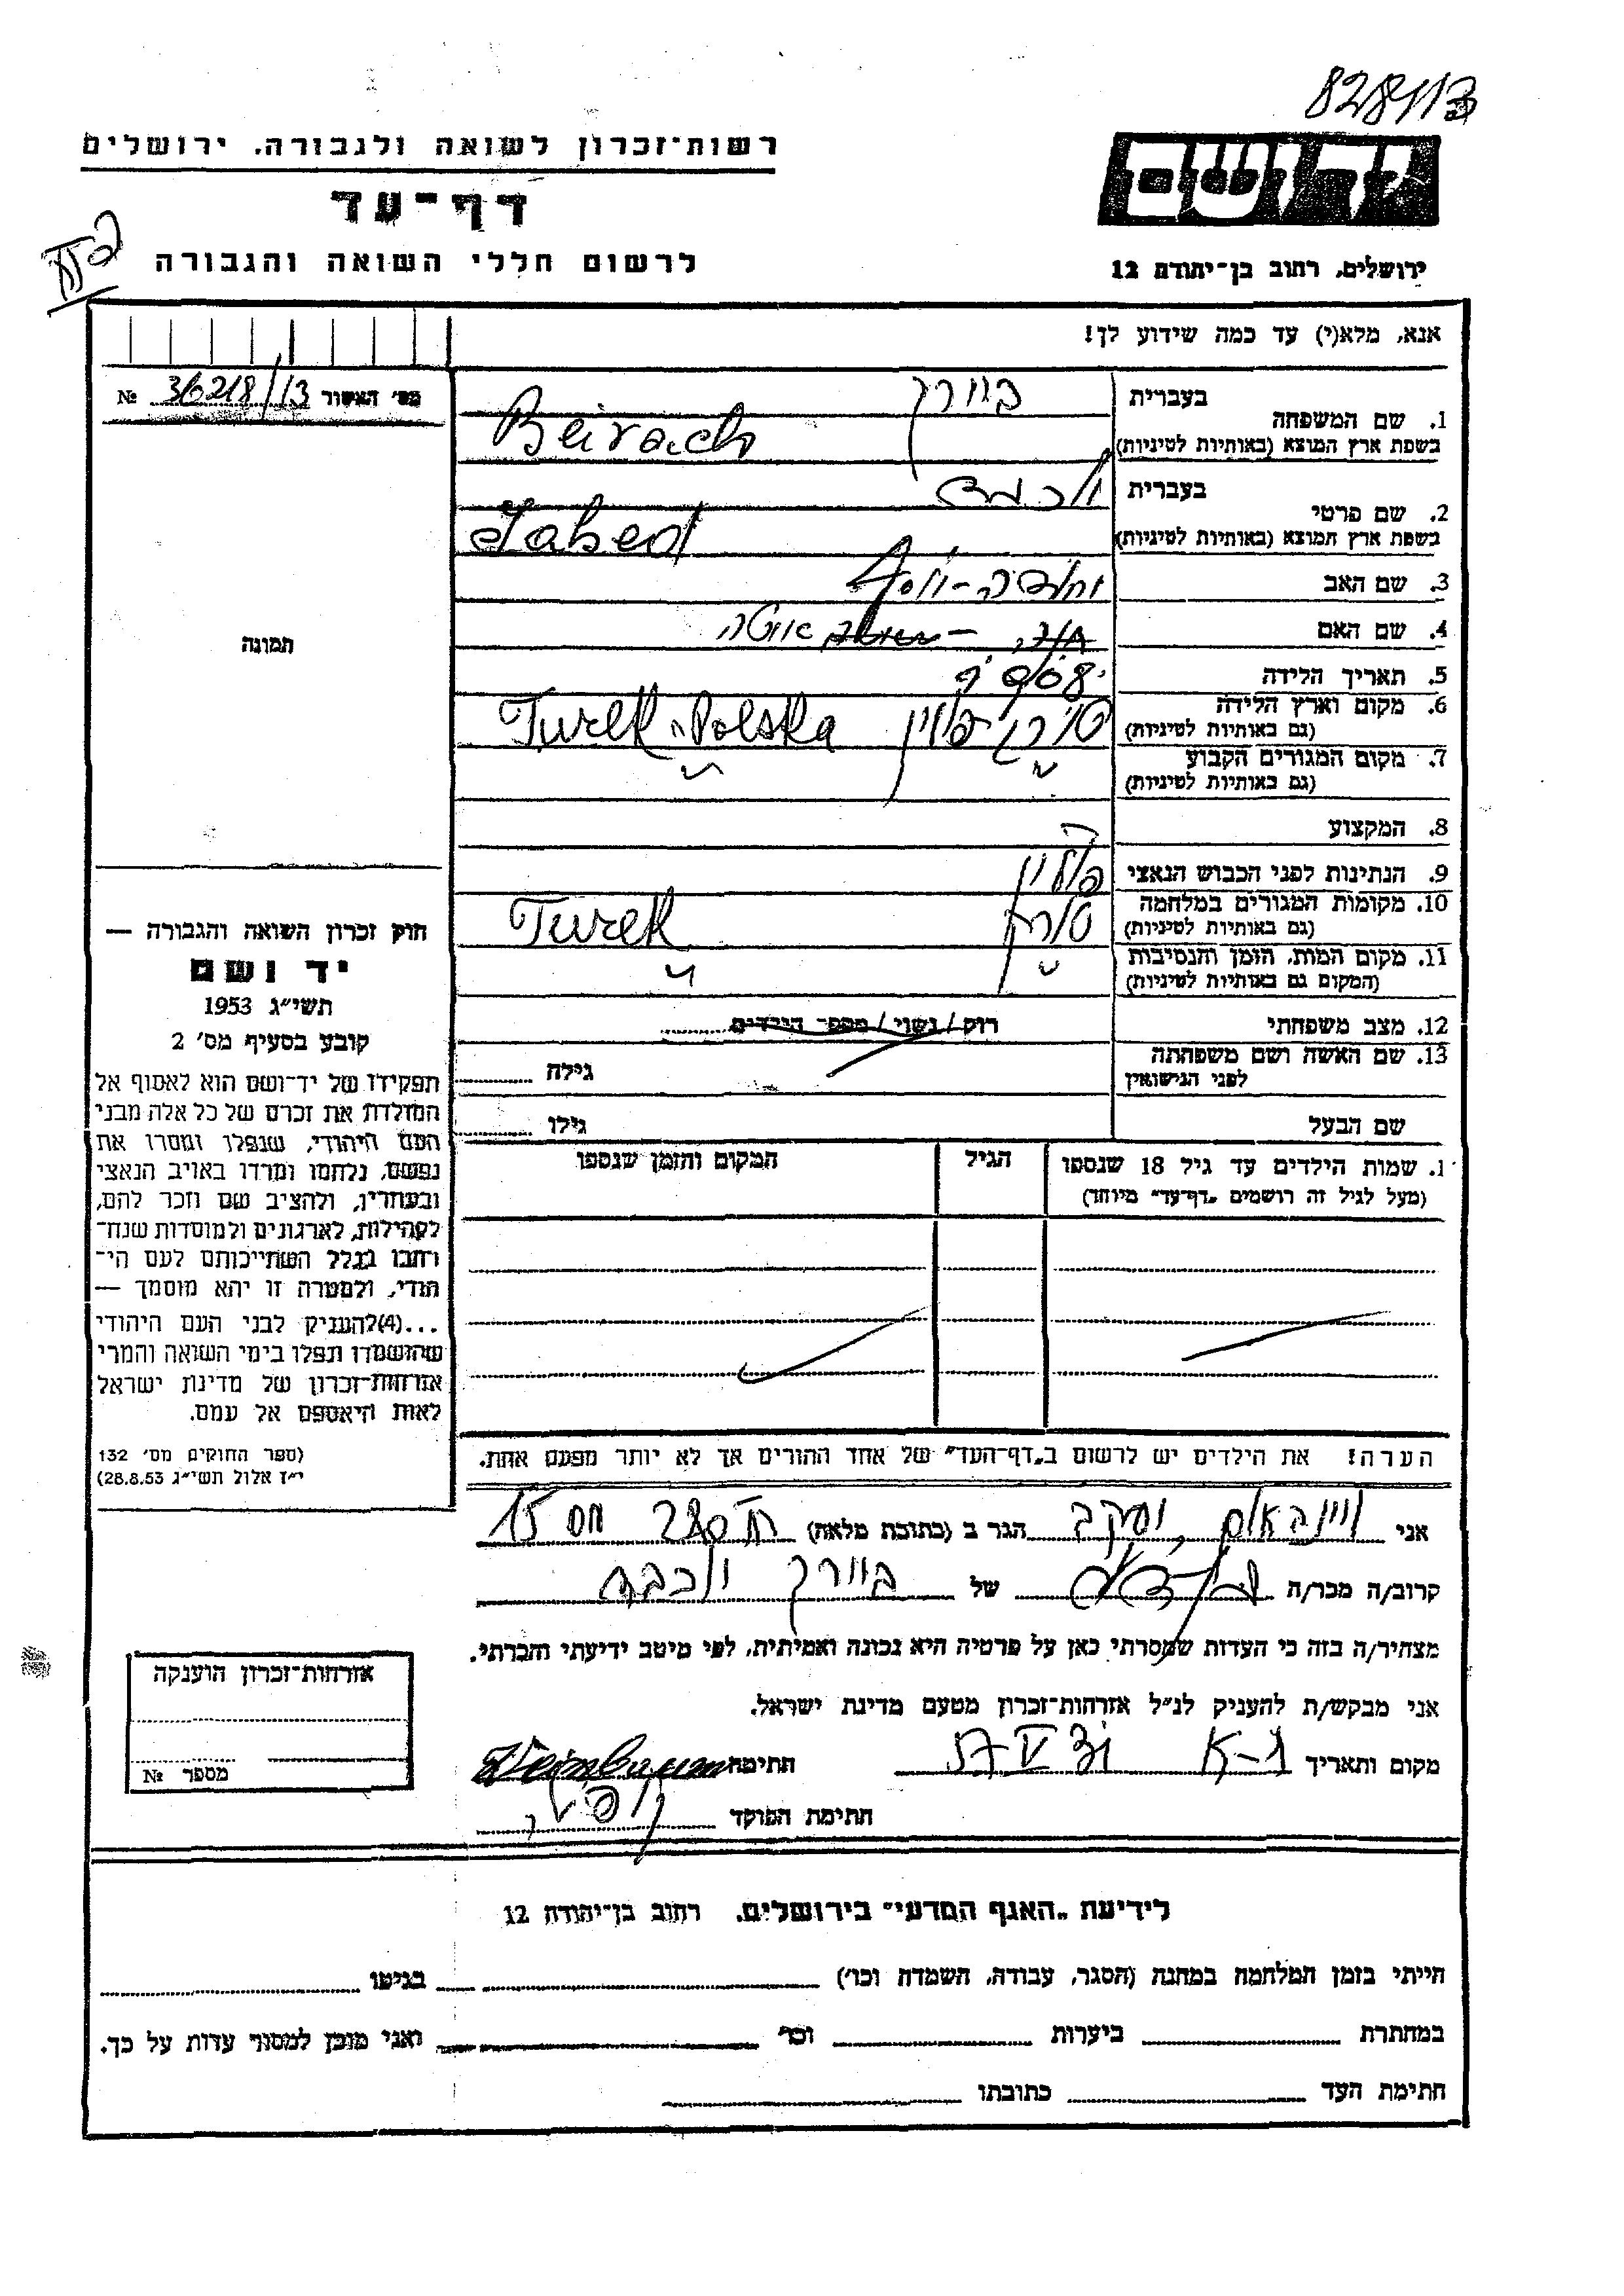 828/13
רשות־זכרון לשואה ולגבורה, ירושלים
דף־עד
לרשום חללי השואה והגבורה
ידושם
ירושלים, רחוב בן־יהודה 12
אנא, מלא(י) עד כמה שידוע לך!
מס' האשור 36218/13 №
1. שם המשפחה
בעברית ביירך
בשפת ארץ המוצא (באותיות לטיניות) Beirach
2. שם פרטי
בעברית יוכבד
בשפת ארץ המוצא (באותיות לטיניות)
3. שם האב
4. שם האם
5. תאריך הלידה
6. מקום וארץ הלידה
(גם באותיות לטיניות) טורק פולין Turek Polska
7. מקום המגורים הקבוע
(גם באותיות לטיניות)
8. המקצוע
9. הנתינות לפני הכבוש הנאצי פולין
10. מקומות המגורים במלחמה
(גם באותיות לטיניות) טורק Turek
11. מקום המות, הזמן והנסיבות
(המקום גם באותיות לטיניות)
12. מצב משפחתי רוק / נשוי / מספר הילדים
13. שם האשה ושם משפחתה
לפני הנישואין גילה
שם הבעל גילו
1. שמות הילדים עד גיל 18 שנספו הגיל המקום והזמן שנספו
(מעל לגיל זה רושמים „דף־עד" מיוחד)
הערה! את הילדים יש לרשום ב„דף־העד" של אחד ההורים אך לא יותר מפעם אחת.
תמונה
חוק זכרון השואה והגבורה —
יד ושם
תשי״ג 1953
קובע בסעיף מס' 2
תפקידו של יד־ושם הוא לאסוף אל
המולדת את זכרם של כל אלה מבני
העם היהודי, שנפלו ומסרו את
נפשם, נלחמו ומרדו באויב הנאצי
ובעוזריו, ולהציב שם וזכר להם,
לקהילות, לארגונים ולמוסדות שנח־
רבו בגלל השתייכותם לעם הי־
הודי, ולמטרה זו יהא מוסמך —
...(4) להעניק לבני העם היהודי
שהושמדו ונפלו בימי השואה והמרי
אזרחות־זכרון של מדינת ישראל
לאות היאספם אל עמם.
(ספר החוקים מס' 132
י״ז אלול תשי״ג 28.8.53)
אני ויינבאום, יעקב הגר ב (כתובת מלאה)
קרוב/ה מכר/ה של ביירך יוכבד
מצהיר/ה בזה כי העדות שמסרתי כאן על פרטיה היא נכונה ואמיתית, לפי מיטב ידיעתי והכרתי.
אני מבקש/ת להעניק לנ״ל אזרחות־זכרון מטעם מדינת ישראל.
מקום ותאריך חתימה Weinbaum
חתימת הפוקד
אזרחות־זכרון הוענקה
מספר №
לידיעת „האגף המדעי" בירושלים, רחוב בן־יהודה 12
הייתי בזמן המלחמה במחנה (הסגר, עבודה, השמדה וכו') בגיטו
במחתרת ביערות וכו' ואני מוכן למסור עדות על כך.
חתימת העד כתובתו